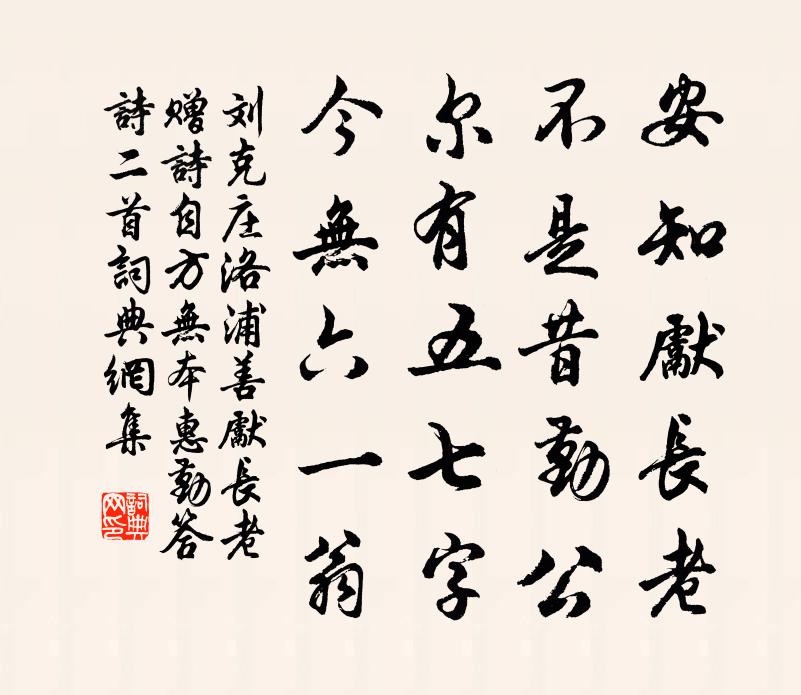 安知獻長老
不是昔勤公
尔有五七字
今無六一翁
刘克庄洛浦善獻長老
赠詩自方無本惠勤答
詩二首詞典網集
詞典網印